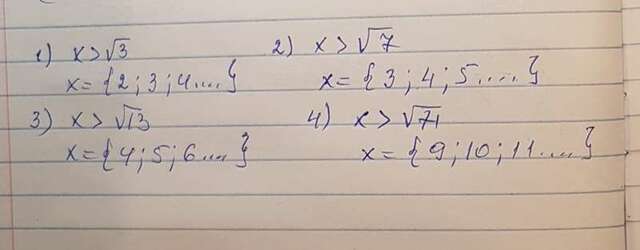 1) x > √3 2) x > √7
x = {2; 3; 4....} x = {3; 4; 5.....}
3) x > √13 4) x > √71
x = {4; 5; 6....} x = {9; 10; 11....}